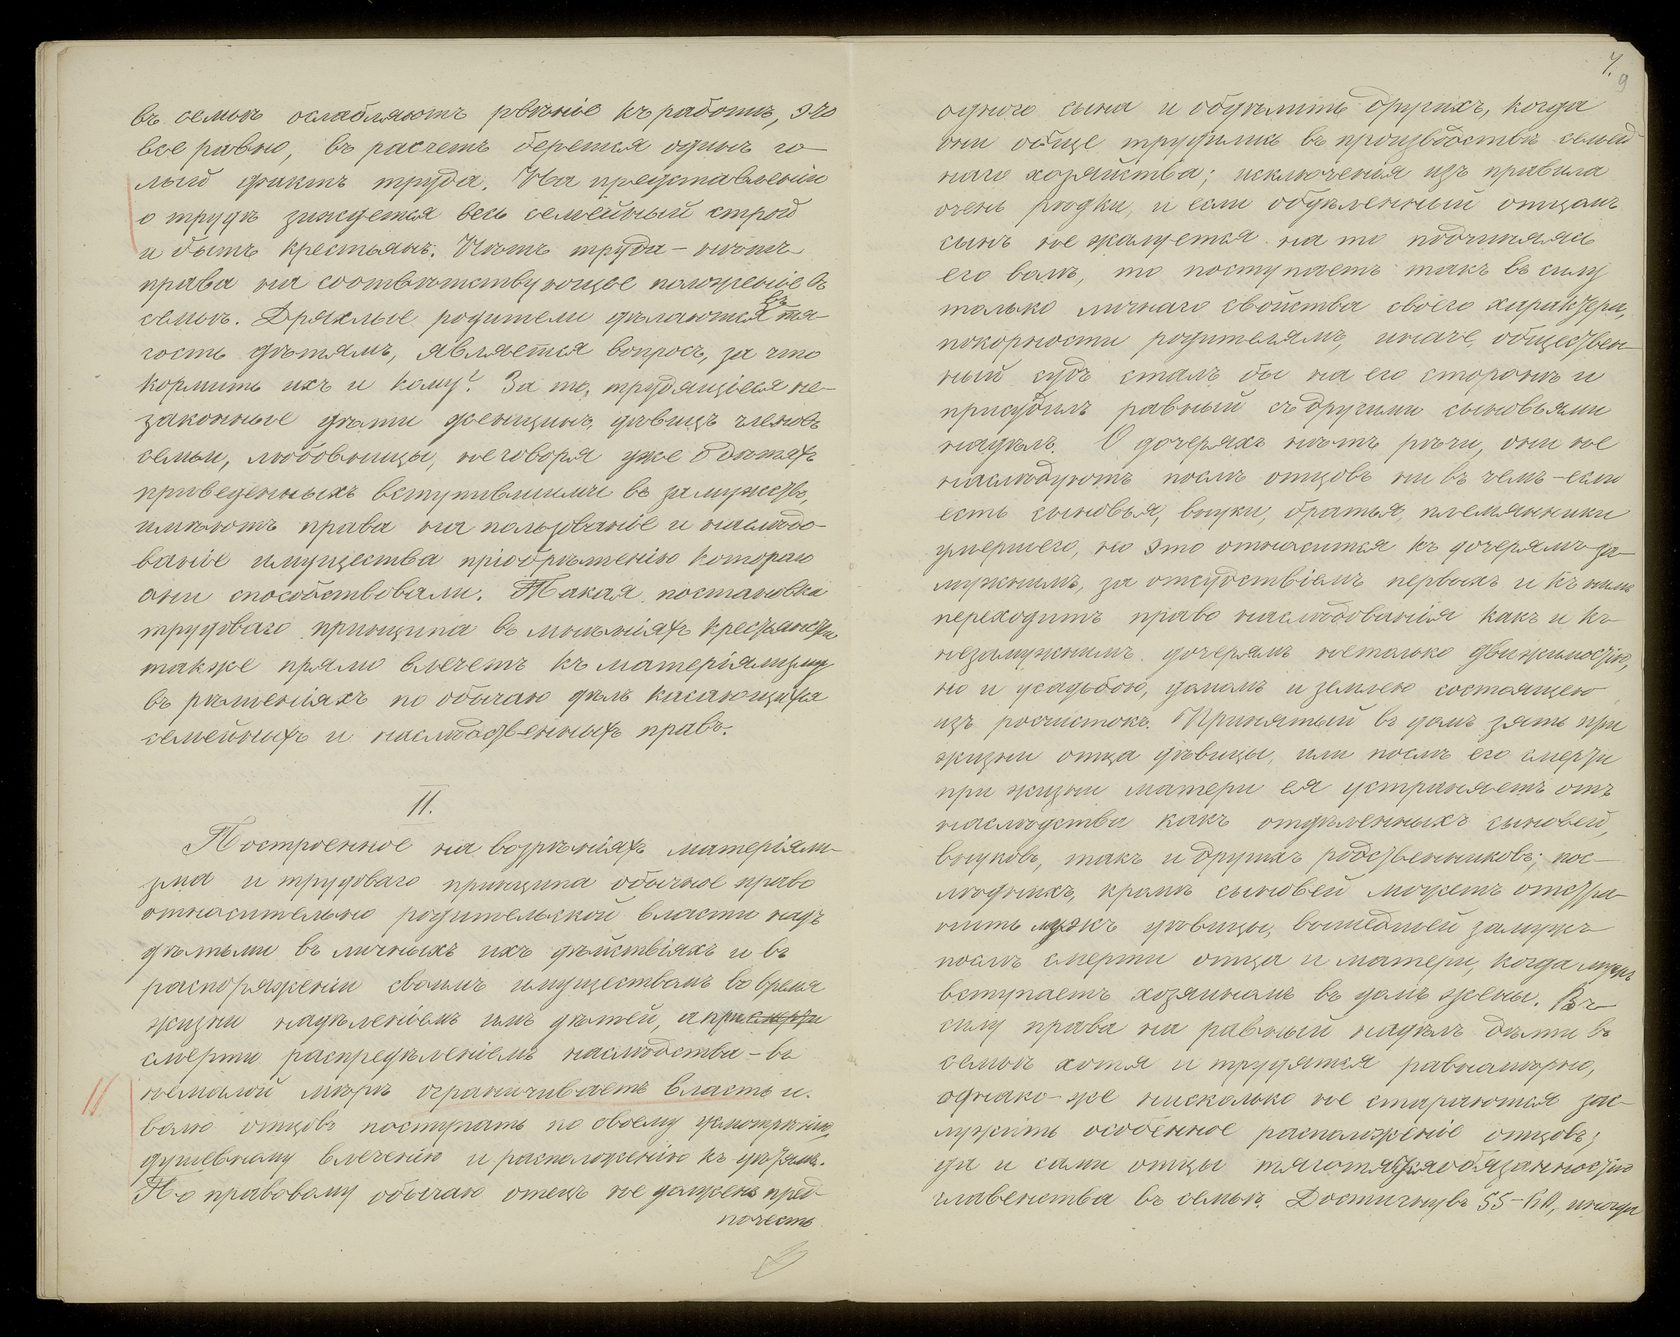 въ семьѣ ослабляютъ рвѣніе къ работѣ, это
все равно, въ расчетъ берется одинъ го-
лый фактъ труда. На представленіи
о трудѣ зиждется весь семейный строй
и бытъ крестьянъ. Нѣтъ труда – нѣтъ
права на соотвѣтствующее положеніе въ
семьѣ. Дряхлые родители дѣлаются въ тя-
гость дѣтямъ, является вопросъ, за что
кормить ихъ и кому? За то, трудящіеся не-
законные дѣти женщинъ, дѣвицъ членовъ
семьи, любовницы, не говоря уже о дѣтяхъ
приведенныхъ вступившими въ замужество,
имѣютъ права на пользованіе и наслѣдо-
ваніе имущества пріобрѣтенію котораго
они способствовали. Такая постановка
трудоваго принципа въ мнѣніяхъ крестьянства
также прямо влечетъ къ матеріялизму
въ рѣшеніяхъ по обычаю дѣлъ касающихся
семейныхъ и наслѣдственныхъ правъ.
II.
Построенное на воззрѣніяхъ матеріяли-
зма и трудоваго принципа обычное право
относительно родительской власти надъ
дѣтьми въ личныхъ ихъ дѣйствіяхъ и въ
распоряженіи своимъ имуществомъ во время
жизни надѣленіемъ имъ дѣтей, а при смерти
смерти распредѣленіемъ наслѣдства – въ
немалой мѣрѣ ограничиваетъ власть и
волю отцовъ поступать по своему усмотрѣнію,
душевному влеченію и расположенію къ дѣтямъ.
По правовому обычаю отецъ не долженъ пред-
почесть
7.
9
одного сына и обдѣлить другихъ, когда
они обще трудились въ производствѣ семей
наго хозяйства; исключенія изъ правила
очень рѣдки, и если обдѣленный отцомъ
сынъ не жалуется на то подчиняясь
его волѣ, то поступаетъ такъ въ силу
только личнаго свойства своего характера,
покорности родителямъ, иначе, обществен-
ный судъ сталъ бы на его сторонѣ и
присудилъ равный съ другими сыновьями
надѣлъ. О дочеряхъ нѣтъ рѣчи, они не
наслѣдуютъ послѣ отцовъ ни въ чемъ – если
есть сыновья, внуки, братья, племянники
умершего, но это относится къ дочерямъ за-
мужнимъ, за отсутствіемъ первыхъ и къ нимъ
переходитъ право наслѣдованія какъ и къ
незамужнимъ дочерямъ не только движимостію,
но и усадьбою, домомъ и землею состоящею
изъ росчистокъ. Принятый въ домъ зять при
жизни отца дѣвицы, или послѣ его смерти
при жизни матери ея устраняетъ отъ
наслѣдства какъ отдѣленныхъ сыновей,
внуковъ, такъ и другихъ родственниковъ; пос-
лѣднихъ, кромѣ сыновей можетъ отстра-
нить мужъ дѣвицы, вышедшей замужъ
послѣ смерти отца и матери, когда мужъ
вступаетъ хозяиномъ въ домъ жены. Въ
силу права на равный надѣлъ дѣти въ
семьѣ хотя и трудятся равномѣрно,
однако-же нисколько не стараются зас-
лужить особенное расположеніе отцовъ;
да и сами отцы тяготятся обязанностію
главенства въ семьѣ. Достигнувъ 55–60, иногда